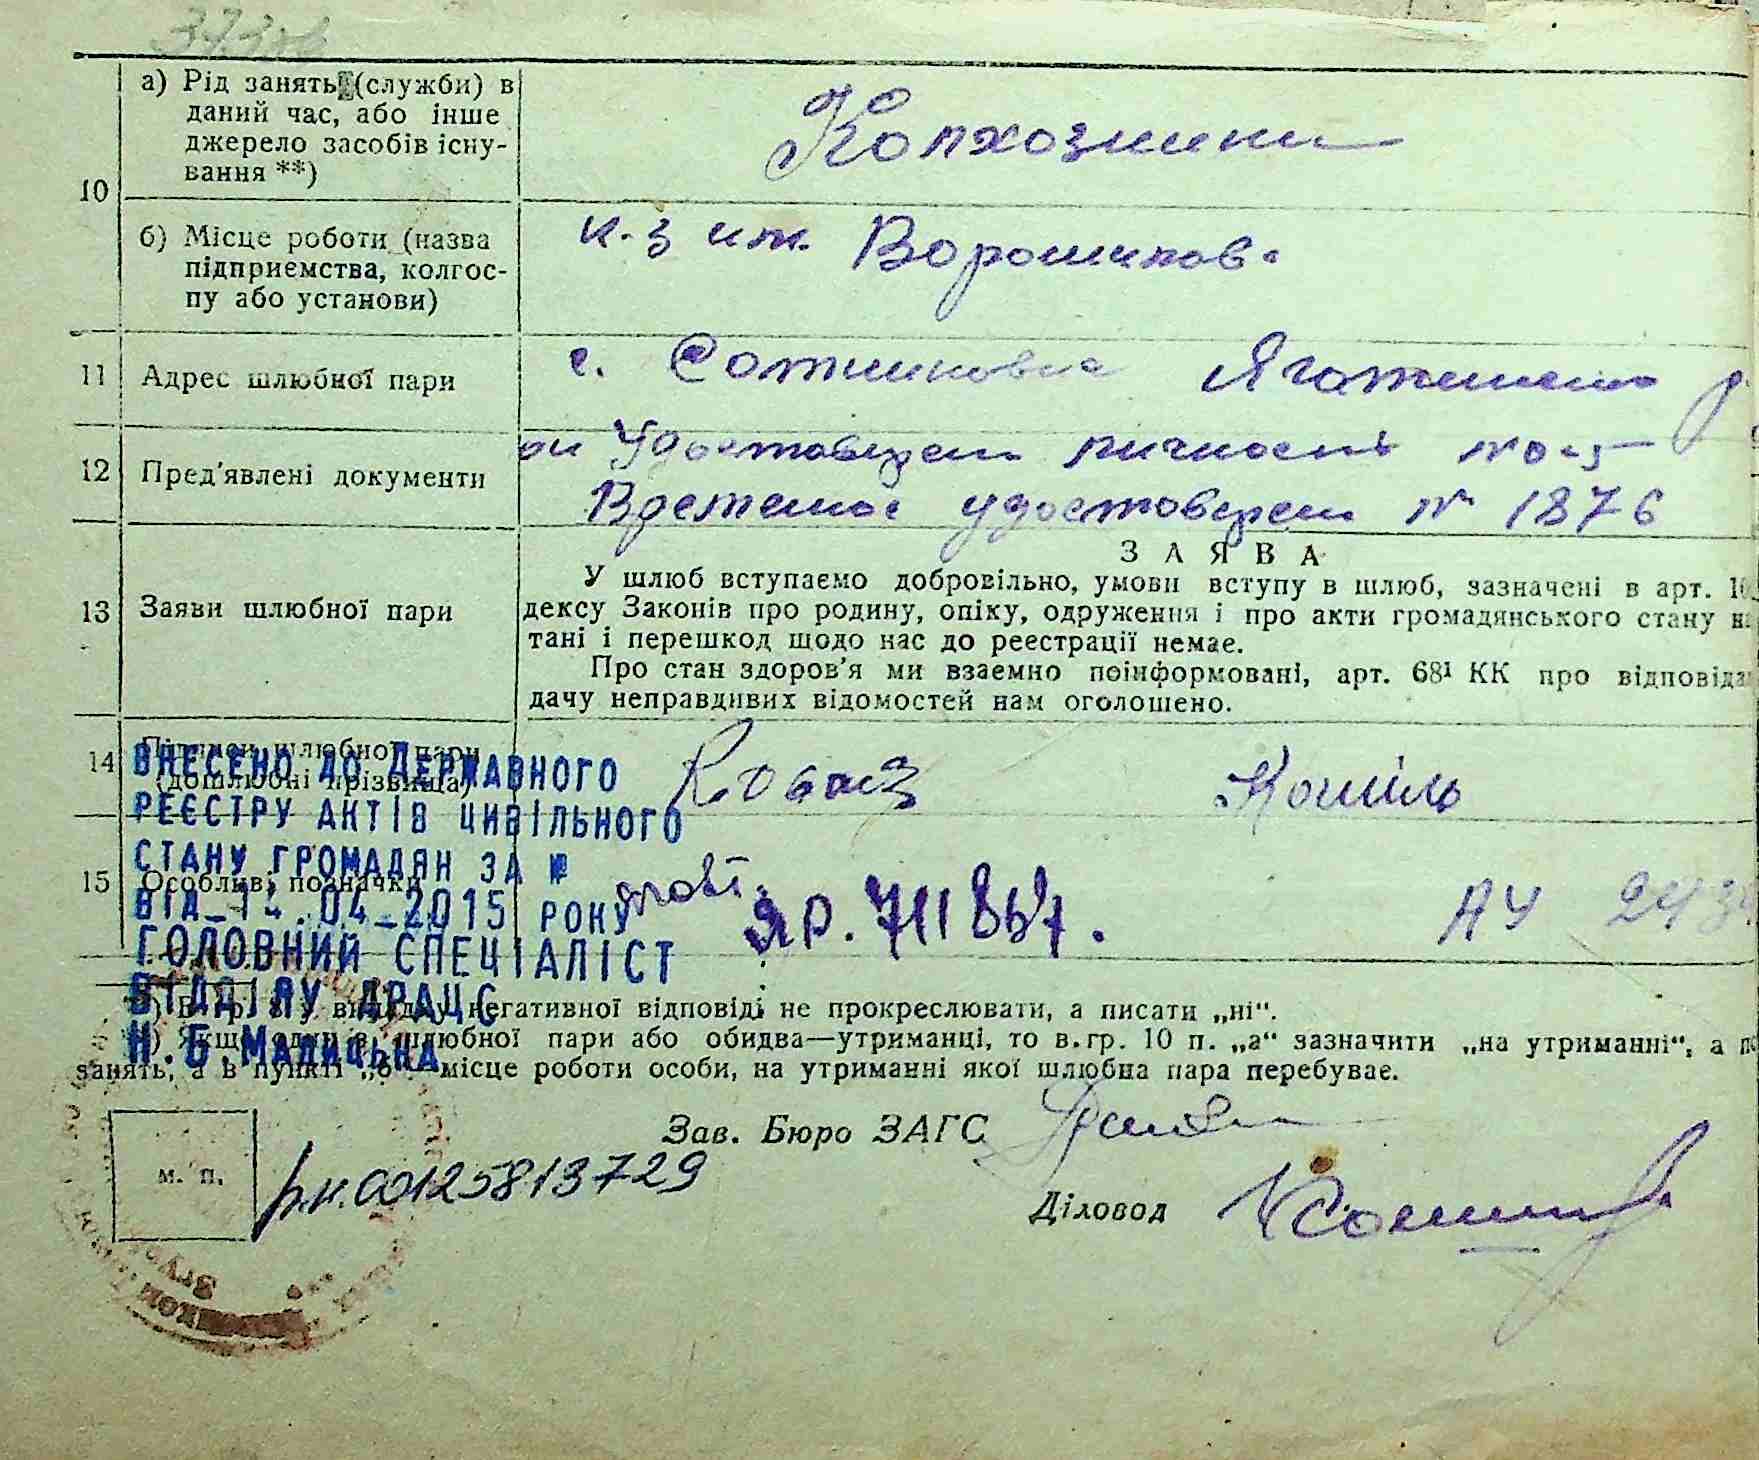 10
а) Рід занять (служби) в
даний час, або інше
джерело засобів існу-
вання **)
Колхозники
б) Місце роботи (назва
підприємства, колгос-
пу або установи)
к-з им. Ворошилова
11
Адрес шлюбної пари
с. Сотниковка Яготинского р
12
Пред'явлені документи
он Удостоверен личности
Временное удостоверен № 1876
13
Заяви шлюбної пари
ЗАЯВА
У шлюб вступаємо добровільно, умови вступу в шлюб, зазначені в арт.
дексу Законів про родину, опіку, одруження і про акти громадянського стану
тані і перешкод щодо нас до реєстрації немає.
Про стан здоров'я ми взаємно поінформовані, арт. 68¹ КК про відповіда
дачу неправдивих відомостей нам оголошено.
14
Підписи шлюбної пари
(дошлюбні прізвища)
Кошіль
15
Особливі позначки
ЯР. 711887.
АУ
ВНЕСЕНО ДО ДЕРЖАВНОГО
РЕЄСТРУ АКТІВ ЦИВІЛЬНОГО
СТАНУ ГРОМАДЯН ЗА №
ВІД 04 2015 РОКУ
ГОЛОВНИЙ СПЕЦІАЛІСТ
ВІДДІЛУ ДРАЦС
Н.Б.
негативної відповіді не прокреслювати, а писати „ні“.
Якщо один з шлюбної пари або обидва—утриманці, то в гр. 10 п. „а“ зазначити „на утриманні“, а
занять, а в пункті „б“ місце роботи особи, на утриманні якої шлюбна пара перебуває.
Зав. Бюро ЗАГС
м. п.
р.н. 00125813729
Діловод